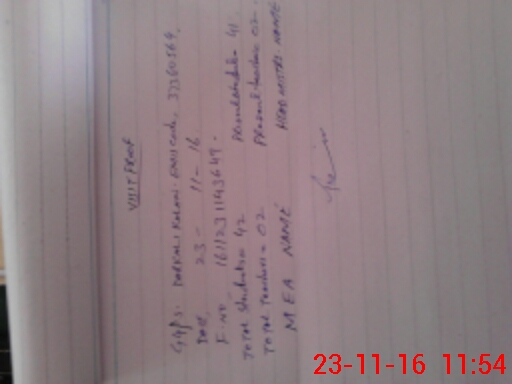 VISIT PROOF
GGPS. KALANI. EMIS Code, 37260564.
Date 23 - 11 - 16
F. no. 161123 1143649.
Total Students = 42 Present students 41.
Total Teachers = 02 Present teachers 02.
MEA NAME HEAD MISTRES NAME
23-11-16 11:54